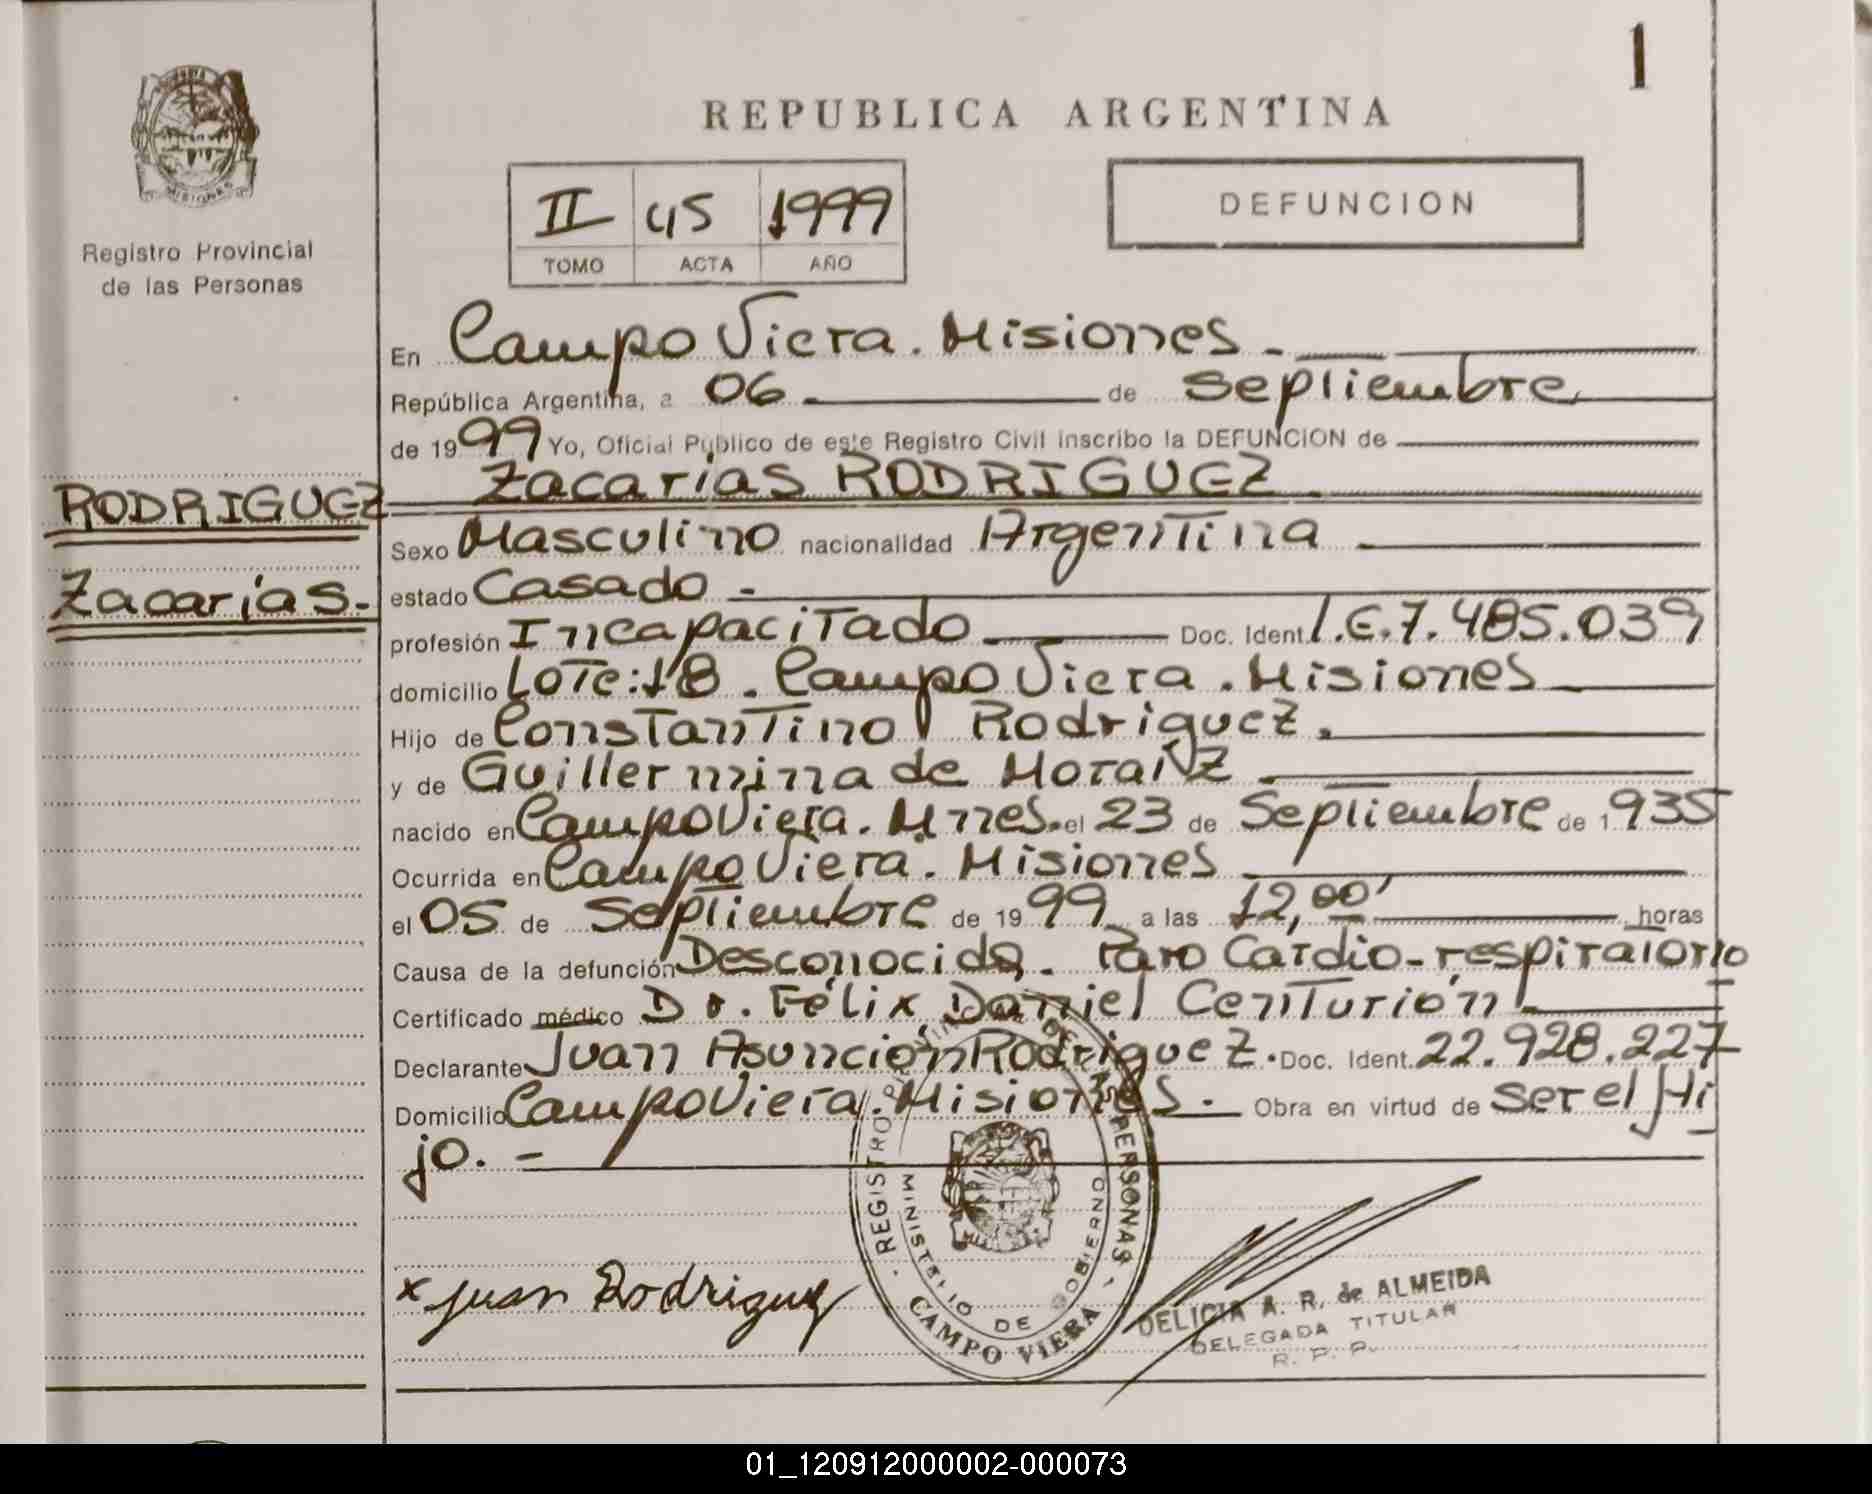 1
MISIONES
Registro Provincial
de las Personas
REPUBLICA ARGENTINA
II 45 1999
TOMO ACTA AÑO
DEFUNCION
En Campo Viera. Misiones -
República Argentina, a 06 de septiembre
de 1999 Yo, Oficial Público de este Registro Civil inscribo la DEFUNCION de
Zacarias RODRIGUEZ
RODRIGUEZ
Zacarias.-
Sexo Masculino nacionalidad Argentina
estado Casado -
profesión Incapacitado Doc. Ident. L.E.7.485.039
domicilio Lote:18. Campo Viera. Misiones
Hijo de Constantino Rodriguez.
y de Guillermina de Moraiz
nacido en Campo Viera. Mnes. el 23 de Septiembre de 1935
Ocurrida en Campo Viera. Misiones
el 05 de Septiembre de 1999 a las 12,00' horas
Causa de la defunción Desconocida. Paro Cardio-respiratorio
Certificado médico Dr. Félix Daniel Centurión
Declarante Juan Asunción Rodriguez. Doc. Ident. 22.928.227
Domicilio Campo Viera. Misiones. Obra en virtud de ser el Hi
jo. -
REGISTRO PROVINCIAL DE LAS PERSONAS
MINISTERIO DE GOBIERNO
CAMPO VIERA
x Juan Rodriguez
DELICIA A. R. de ALMEIDA
DELEGADA TITULAR
R. P. P.
01_120912000002-000073